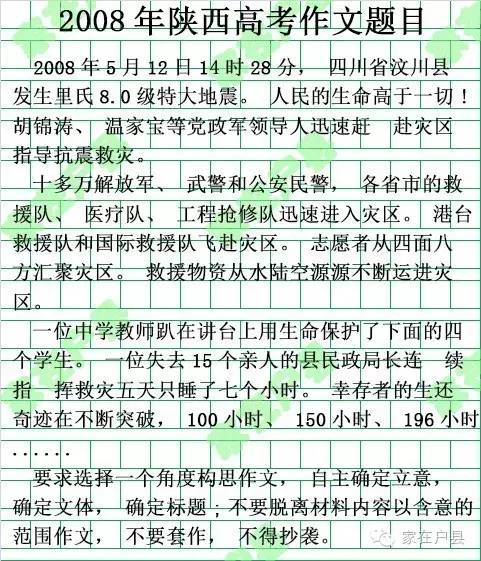 2008年陕西高考作文题目
2008年5月12日14时28分， 四川省汶川县
发生里氏8.0级特大地震。 人民的生命高于一切！
胡锦涛、 温家宝等党政军领导人迅速赶 赴灾区
指导抗震救灾。
十多万解放军、 武警和公安民警， 各省市的救
援队、 医疗队、 工程抢修队迅速进入灾区。 港台
救援队和国际救援队飞赴灾区。 志愿者从四面八
方汇聚灾区。 救援物资从水陆空源源不断运进灾
区。
一位中学教师趴在讲台上用生命保护了下面的四
个学生。 一位失去15个亲人的县民政局长连 续
指 挥救灾五天只睡了七个小时。 幸存者的生还
奇迹在不断突破， 100小时、 150小时、 196小时
......
要求选择一个角度构思作文， 自主确定立意，
确定文体， 确定标题；不要脱离材料内容以含意的
范围作文， 不要套作， 不得抄袭。
家在户县